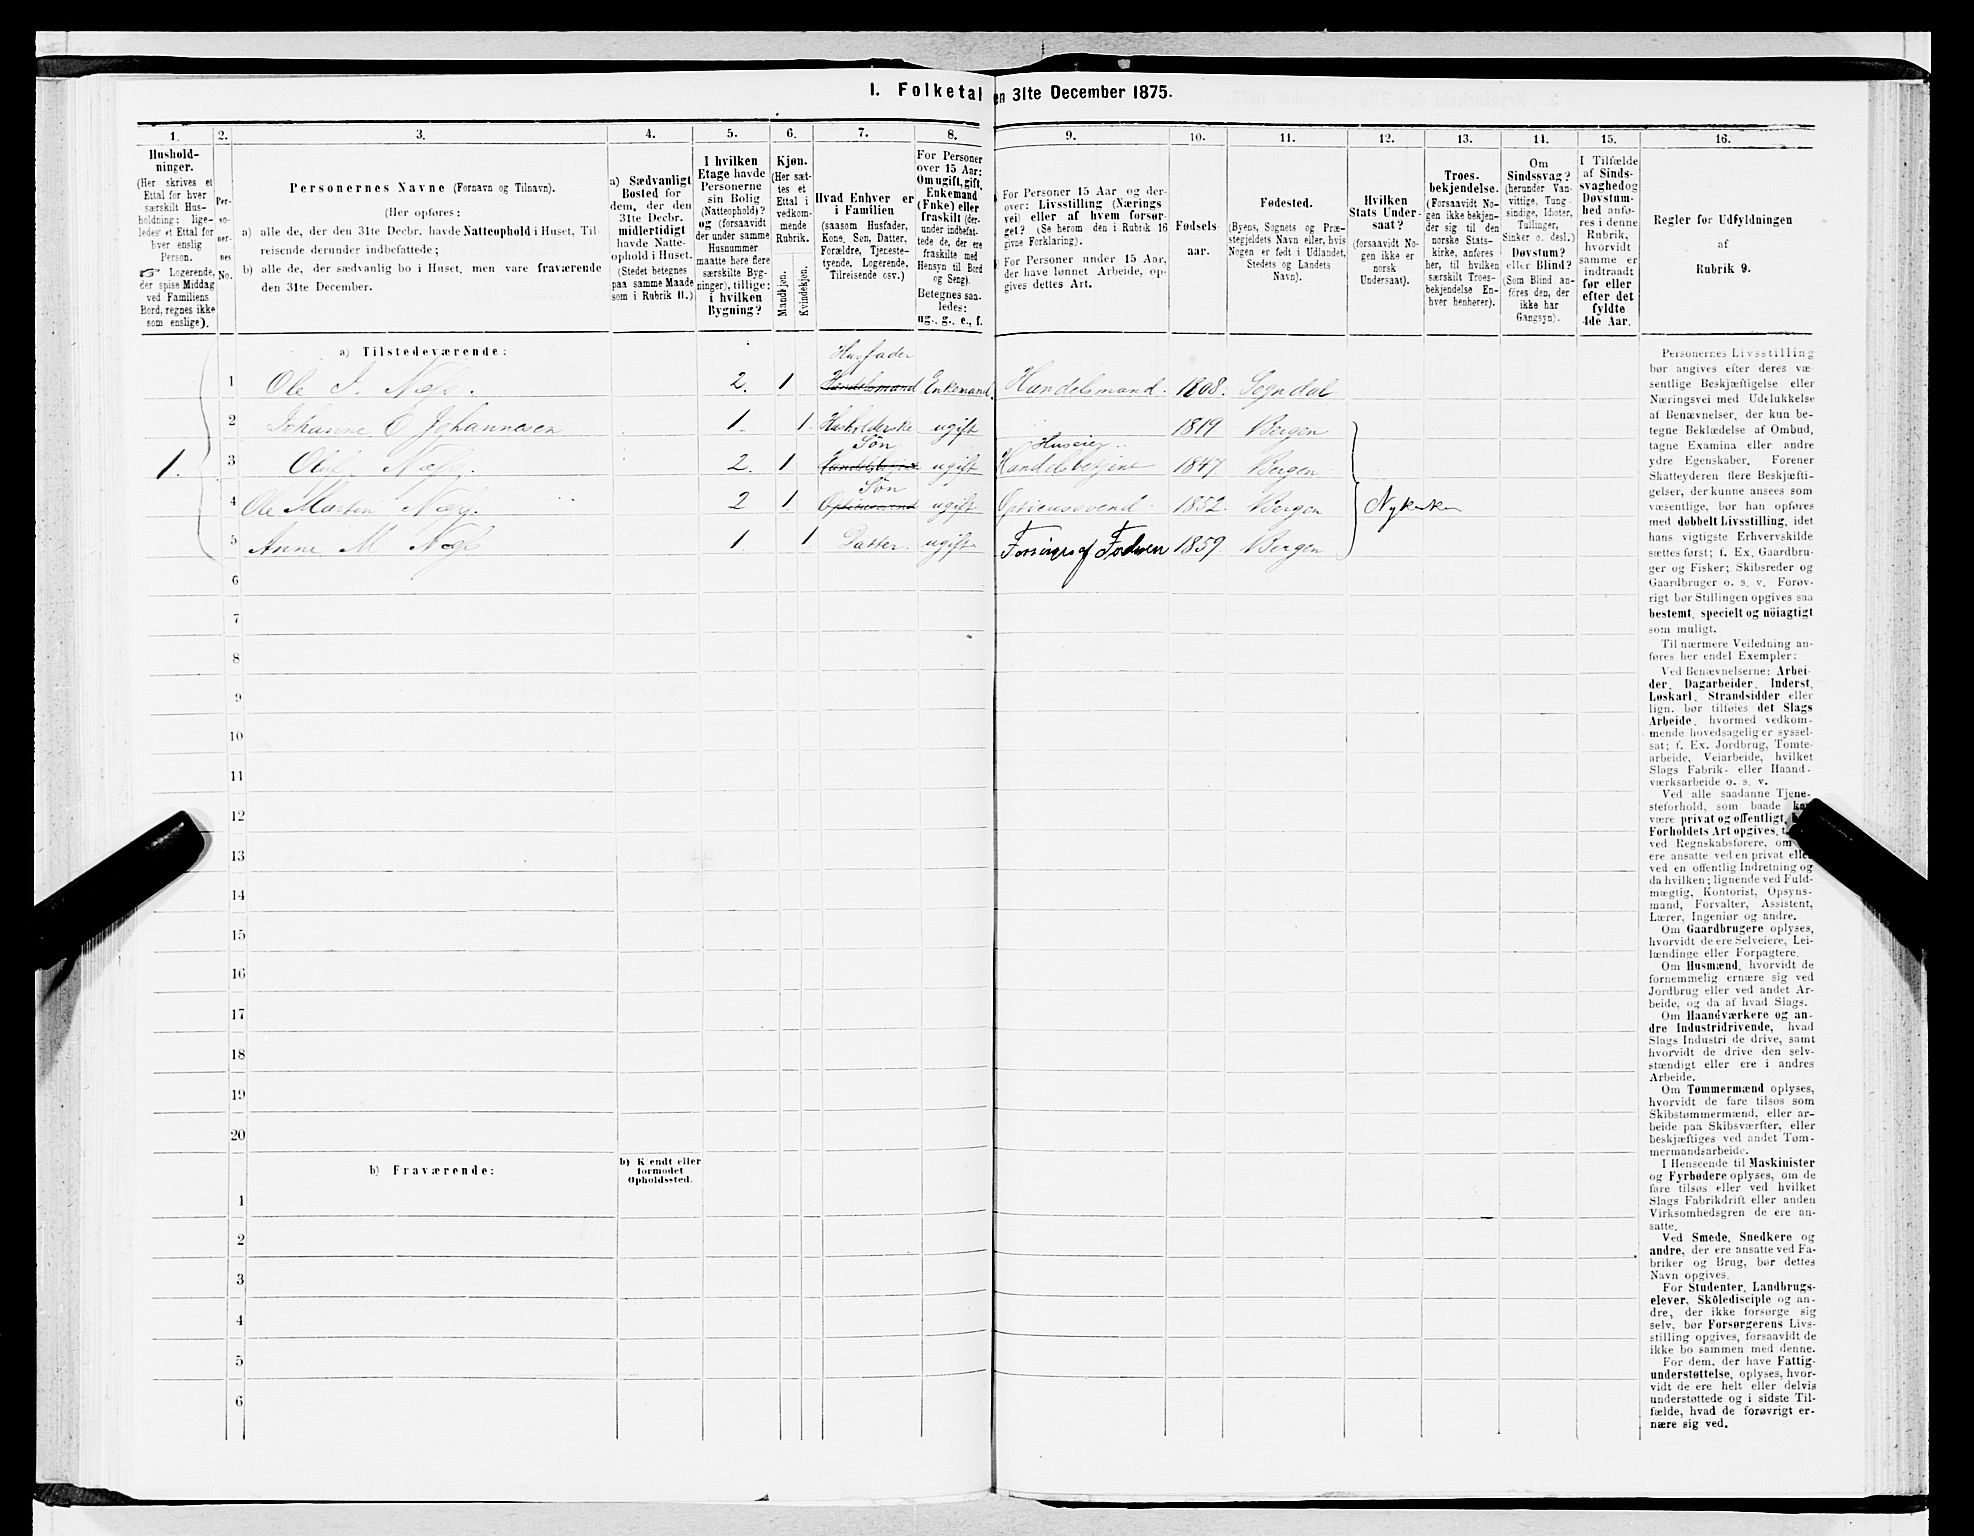 1. Folketal
en 31te December 1875.
1.
Hushold-
ninger.
(Her skrives et
Ettal for hver
særskilt Hus-
holdning; lige-
ledes et Ettal for
hver enslig
Person.
Logerende,
der spise Middag
ved Familiens
Bord, regnes ikke
som enslige).
2.
Per-
so-
ner-
nes
No.
3.
Personernes Navne (Fornavn og Tilnavn).
(Her opføres:
a) alle de, der den 31te Decbr. havde Natteophold i Huset, Til-
reisende derunder indbefattede;
b) alle de, der sædvanlig bo i Huset, men vare fraværende
den 31te December.
4.
a) Sædvanligt
Bosted for
dem, der den
31te Decbr.
midlertidigt
havde Natte-
ophold i Huset.
(Stedet betegnes
paa samme Maade
som i Rubrik 11.)
5.
I hvilken
Etage havde
Personerne
sin Bolig
(Natteophold)?
og (forsaavidt
der under samme
Husnummer
maatte høre flere
særskilte Byg-
ninger), tillige:
i hvilken
Bygning?
6.
Kjøn.
(Her sæt-
tes et
Ettal i
vedkom-
mende
Rubrik.
Mandkjøn.
Kvindekjøn.
7.
Hvad Enhver er
i Familien
(saasom Husfader,
Kone, Søn, Datter,
Forældre, Tjeneste-
tyende, Logerende,
Tilreisende osv.)
8.
For Personer
over 15 Aar:
Om ugift, gift,
Enkemand
(Enke) eller
fraskilt (der-
under indbefat-
tede de, der ere
fraskilte med
Hensyn til Bord
og Seng).
Betegnes saa-
ledes:
ug., g., e., f.
9.
For Personer 15 Aar og der-
over: Livsstilling (Nærings
vei) eller af hvem forsør-
get? (Se herom den i Rubrik 16
givne Forklaring).
For Personer under 15 Aar,
der have lønnet Arbeide, op-
gives dettes Art.
10.
Fødsels-
aar.
11.
Fødested.
(Byens, Sognets og Præ-
stegjeldets Navn eller, hvis
Nogen er født i Udlandet,
Stedets og Landets
Navn).
12.
Hvilken
Stats Under-
saat?
(forsaavidt No-
gen ikke er
norsk
Undersaat).
13.
Troes-
bekjendelse.
(Forsaavidt No-
gen ikke bekjen-
der sig til den
norske Stats-
kirke, anføres
her, til hvilken
særskilt Troes-
bekjendelse En-
hver henhører).
14.
Om
Sindssvag?
(herunder Van-
vittige, Tung-
sindige, Idioter,
Tullinger,
Sinker o. desl.)
Døvstum?
eller Blind?
(Som Blind an-
føres den, der
ikke har
Gangsyn).
15.
I Tilfælde
af Sinds-
svaghed og
Døvstum-
hed anfø-
res i denne
Rubrik,
hvorvidt
samme er
indtraadt
før eller
efter det
fyldte
4de Aar.
16.
Regler for Udfyldningen
af
Rubrik 9.
a) Tilstedeværende:
1 Ole I. Næss. 2. 1 Husfader Handelsmand Enkemand. Handelsmand. 1808. Sogndal
2 Johanne O Johannesen 1. 1. Husholderske ugift 1819 Bergen
1. 3 Oluf Næss. 2. 1 Søn Handelsbetjent ugift Huseier Handelsbetjent 1847. Bergen
4 Ole Martin Næss. 2 1. Søn Optiensvend ugift Optiensvend 1852. Bergen Nykirken
5 Anne M Næss 1 1 Datter. ugift Forsørges af Faderen 1859. Bergen
6
7
8
9
10
11
12
13
14
15
16
17
18
19
20
b) Fraværende:
b) Kjendt eller
formodet
Opholdssted.
1
2
3
4
5
6
Personernes Livsstilling
bør angives efter deres væ-
sentlige Beskjæftigelse eller
Næringsvei med Udelukkelse
af Benævnelser, der kun be-
tegne Beklædelse af Ombud,
tagne Examina eller andre
ydre Egenskaber. Forener
Skatteyderen flere Beskjæfti-
gelser, der kunne ansees som
væsentlige, bør han opføres
med dobbelt Livsstilling, idet
hans vigtigste Erhvervskilde
sættes først; f. Ex. Gaardbru-
ger og Fisker; Skibsreder og
Gaardbruger o. s. v. Forøv-
rigt bør Stillingen opgives saa
bestemt, specielt og nöiagtigt
som muligt.
Til nærmere Veiledning an-
føres her endel Exempler:
Ved Benævnelserne: Arbei-
der, Dagarbeider, Inderst,
Løskarl, Strandsidder eller
lign. bør tilføies det Slags
Arbeide, hvormed vedkom-
mende hovedsagelig er syssel-
sat; f. Ex. Jordbrug, Tomte-
arbeide, Veiarbeide, hvilket
Slags Fabrik- eller Haand-
værksarbeide o. s. v.
Ved alle saadanne Tjene-
steforhold, som baade kan
være privat og offentligt,
Forholdets Art opgives,
ved Regnskabsførere, om
ere ansatte ved en privat eller
ved en offentlig Indretning og
da hvilken; lignende ved Fuld-
mægtig, Kontorist, Opsyns-
mand, Forvalter, Assistent,
Lærer, Ingeniør og andre.
Om Gaardbrugere oplyses,
hvorvidt de ere Selveiere, Lei-
lændinge eller Forpagtere.
Om Husmænd, hvorvidt de
fornemmelig ernære sig ved
Jordbrug eller ved andet Ar-
beide, og da af hvad Slags.
Om Haandværkere og an-
dre Industridrivende, hvad
Slags Industri de drive, samt
hvorvidt de drive den selv-
stændigt eller ere i andres
Arbeide.
Om Tømmermænd oplyses,
hvorvidt de fare tilsøs som
Skibstømmermænd, eller ar-
beide paa Skibsværfter, eller
beskjæftiges ved andet Tøm-
mermandsarbeide.
I Henseende til Maskinister
og Fyrbødere oplyses, om de
fare tilsøs eller ved hvilket
Slags Fabrikdrift eller anden
Virksomhedsgren de ere an-
satte.
Ved Smede, Snedkere og
andre, der ere ansatte ved Fa-
briker og Brug, bør dettes
Navn opgives.
For Studenter, Landbrugs-
elever, Skôledisciple og an-
dre, der ikke forsørge sig
selv, bør Forsørgerens Livs-
stilling opgives, forsaavidt de
ikke bo sammen med denne.
For dem, der have Fattig-
understøttelse, oplyses, hvor-
vidt de ere helt eller delvis
understøttede og i sidste Til-
fælde, hvad de forøvrigt er-
nære sig ved.